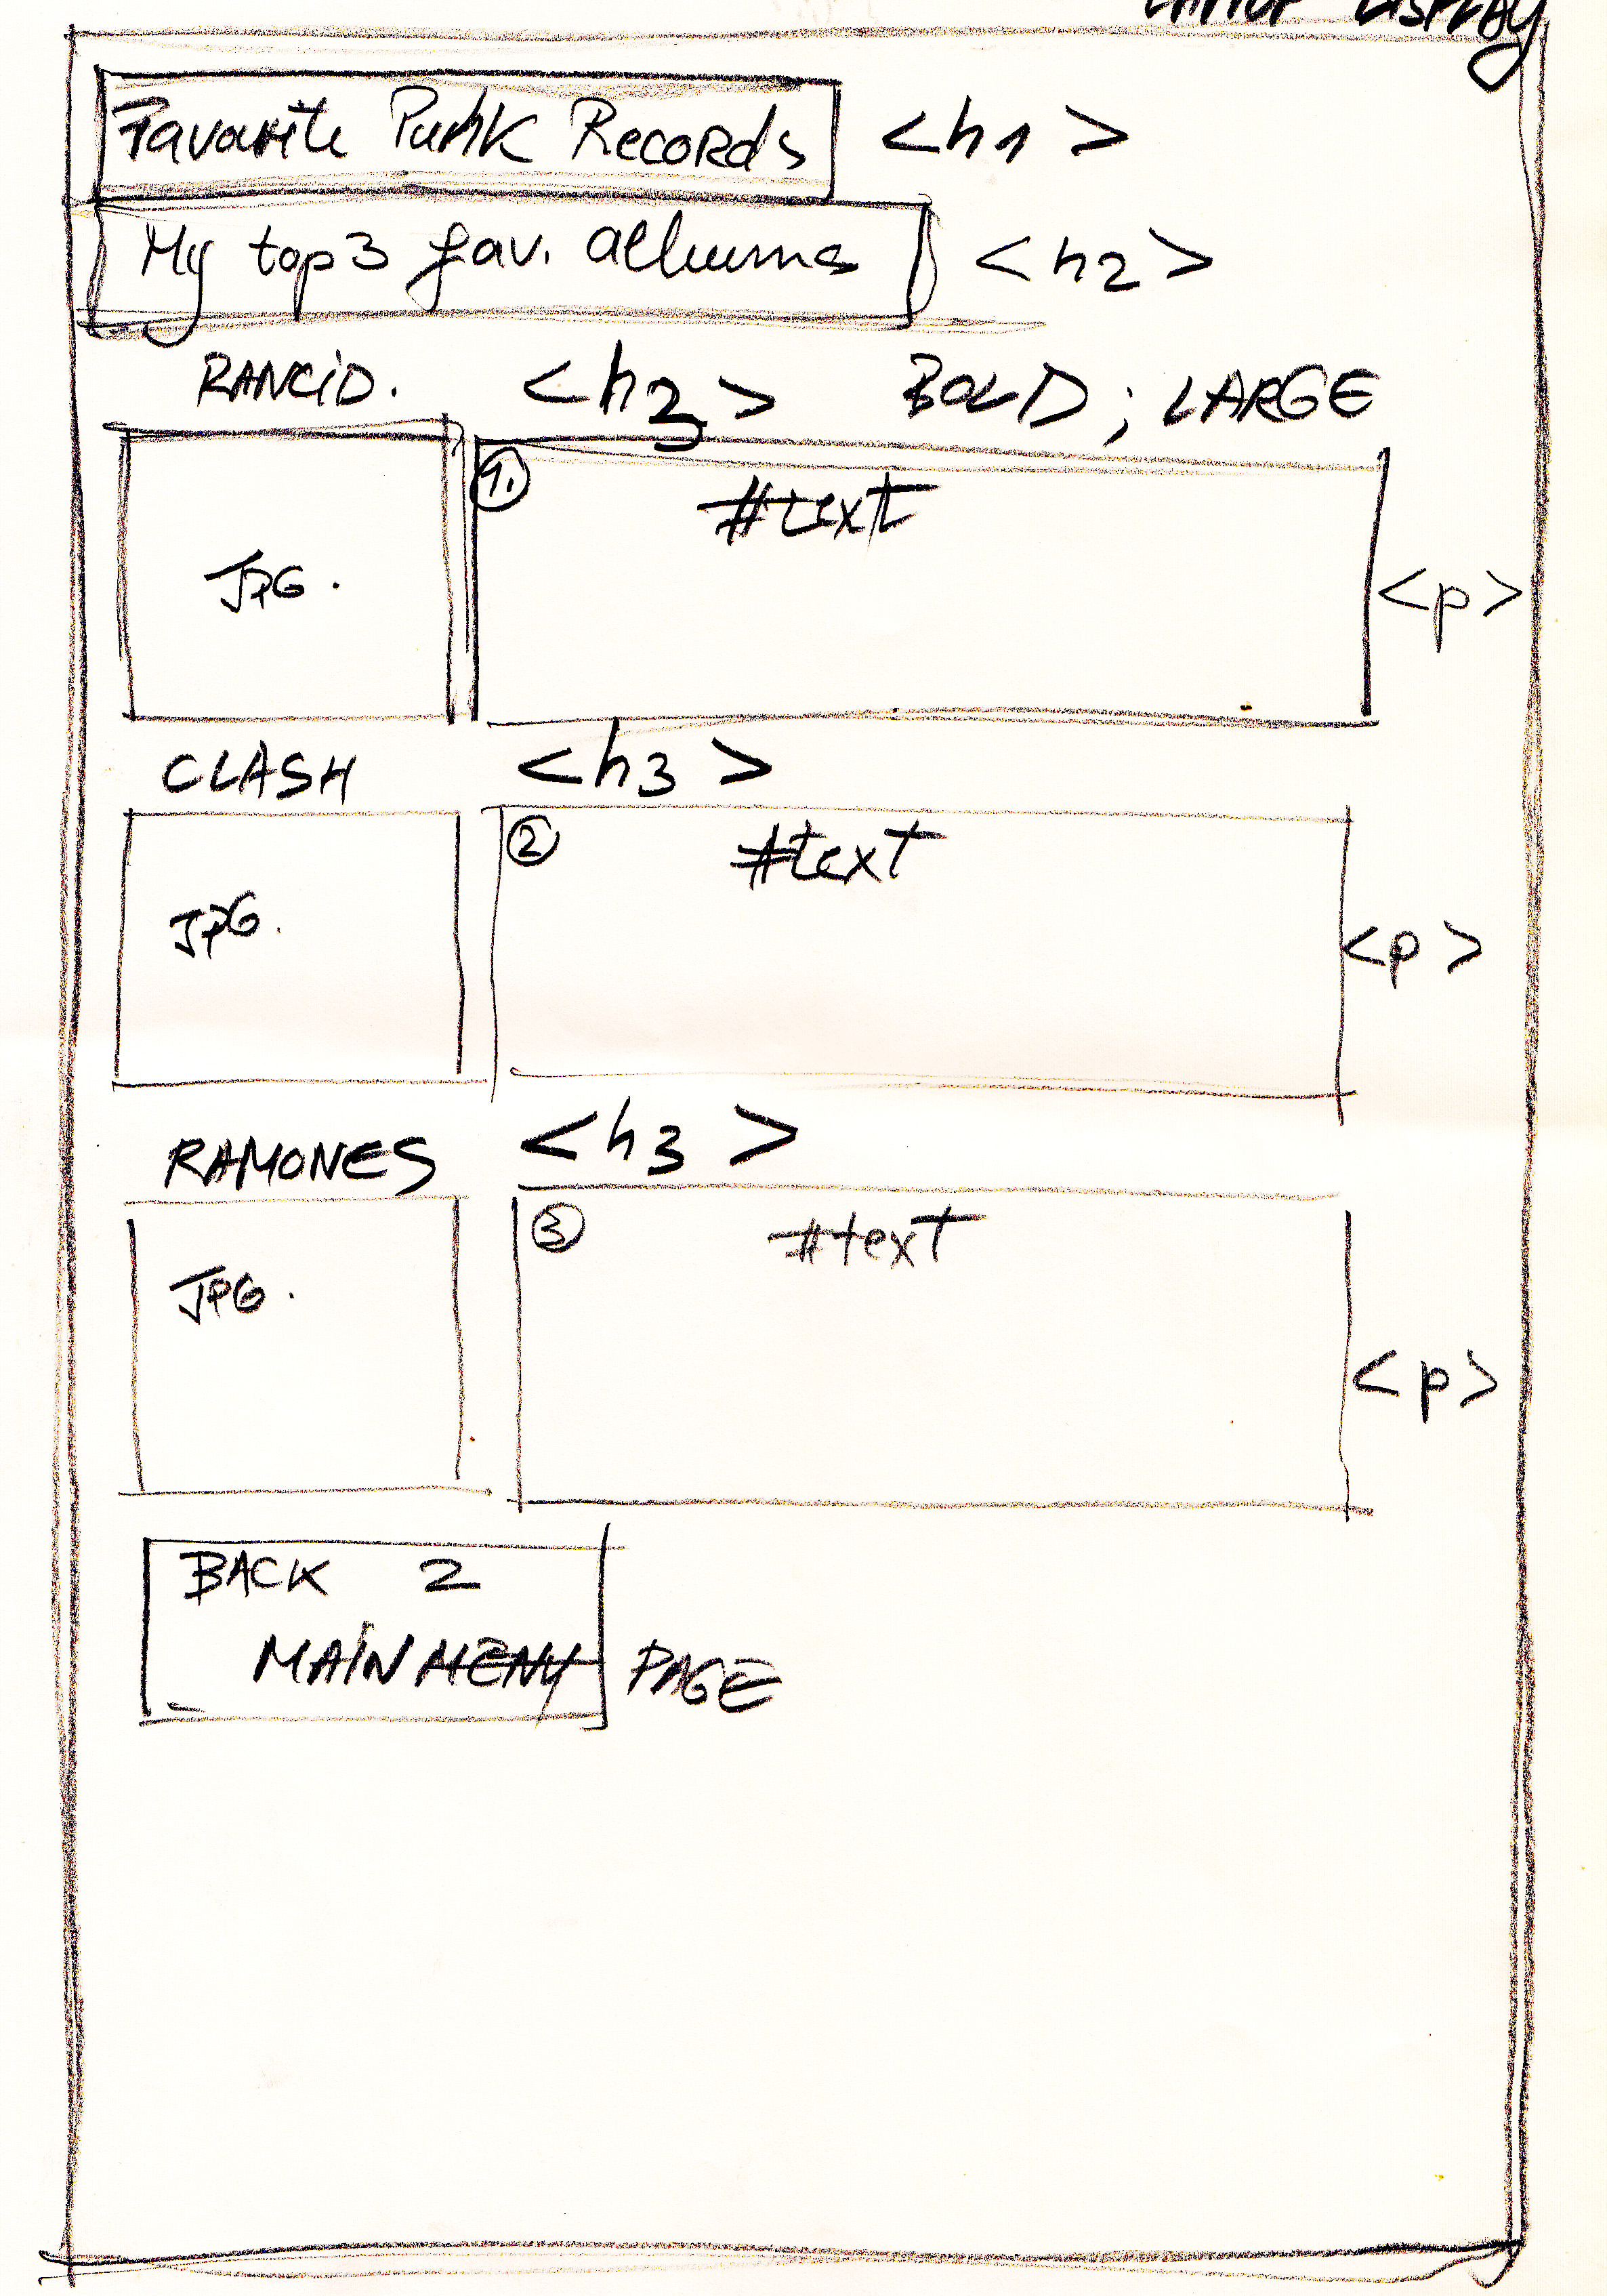 DISPLAY
Favorite Punk Records <h1>
My top 3 fav. albums <h2>
RANCID. <h3> BOLD ; LARGE
1. #text
JPG. <p>
CLASH <h3>
2 #text
JPG. <p>
RAMONES <h3>
3 #text
JPG. <p>
BACK 2
MAIN MENU PAGE